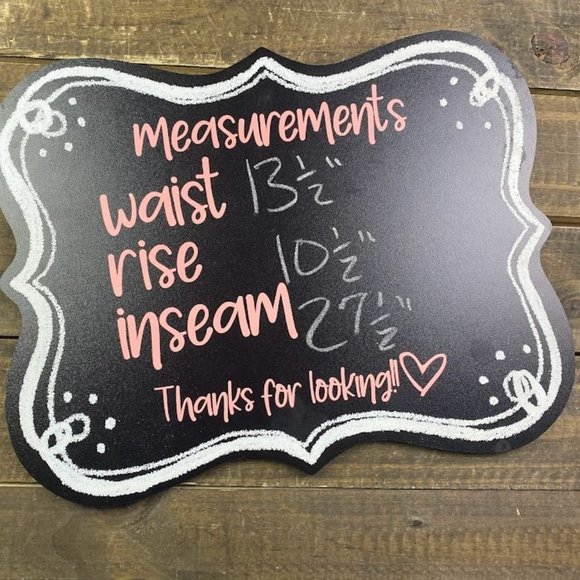 measurements
waist 13 1/2"
rise 10 1/2"
inseam 27 1/2"
Thanks for looking!!